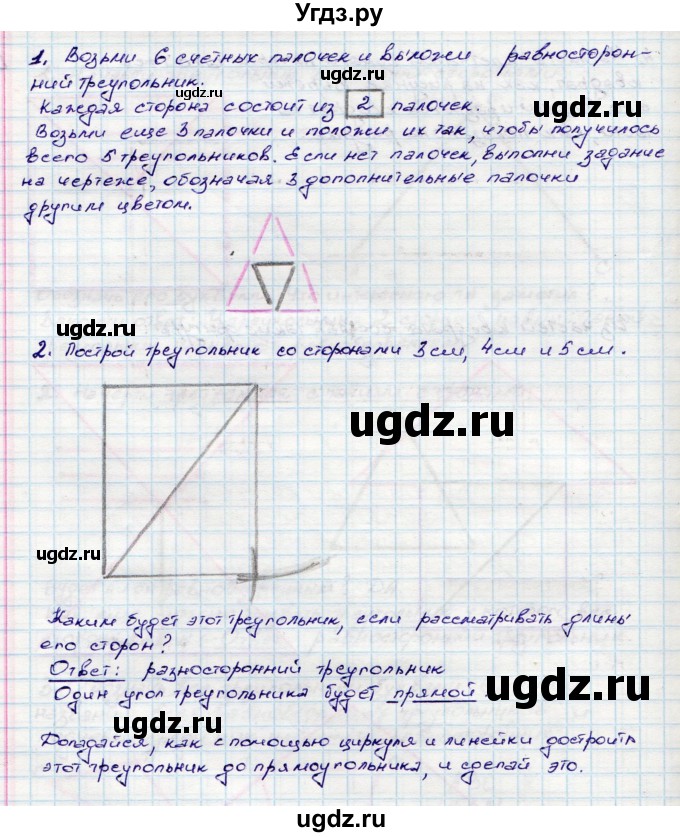 Угдз.ру
1. Возьми 6 счетных палочек и выложи равносторон-
ний треугольник.
ugdz.ru
Каждая сторона состоит из 2 палочек.
ugdz.ru
Возьми еще 3 палочки и положи их так, чтобы получилось
всего 5 треугольников. Если нет палочек, выполни задание
на чертеже, обозначая 3 дополнительные палочки
другим цветом.
ugdz.ru
ugdz.ru
ugdz.ru
2. Построй треугольник со сторонами 3 см, 4 см и 5 см.
ugdz.ru
ugdz.ru
ugdz.ru
Каким будет этот треугольник, если рассматривать длины
его сторон?
Ответ: разносторонний треугольник
ugdz.ru
Один угол треугольника будет прямой
ugdz.ru
Догадайся, как с помощью циркуля и линейки достроить
этот треугольник до прямоугольника, и сделай это.
ugdz.ru
ugdz.ru